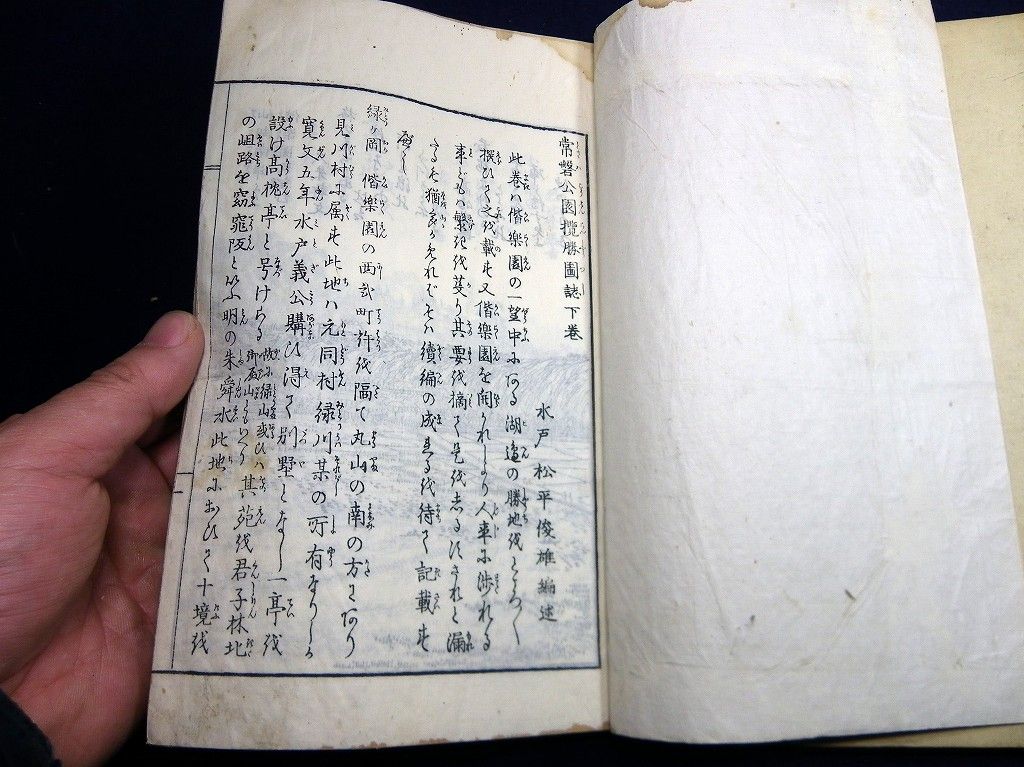 常磐公園攬勝圖誌下巻
水戸 松平俊雄編述
此巻ハ偕樂園の一望中にある湖邉の勝地をとるへく
撰ひて之を載す又偕樂園を開かれしより人事に渉れる
事ともハ繁を芟り其要を摘て是を志るすされと漏
たるも猶多かれバそハ續編の成るを待て記載す
べし
緑ヶ岡 偕樂園の西 町許を隔て丸山の南の方にあり
見川村に属す此地ハ元同村緑川某の所有なりしか
寛文五年水戸義公購ひ得て別墅となし一亭を
設け高枕亭と号けらる 其苑を君子林北
の岨路を窈窕阪と云ふ明の朱舜水此地において十境を